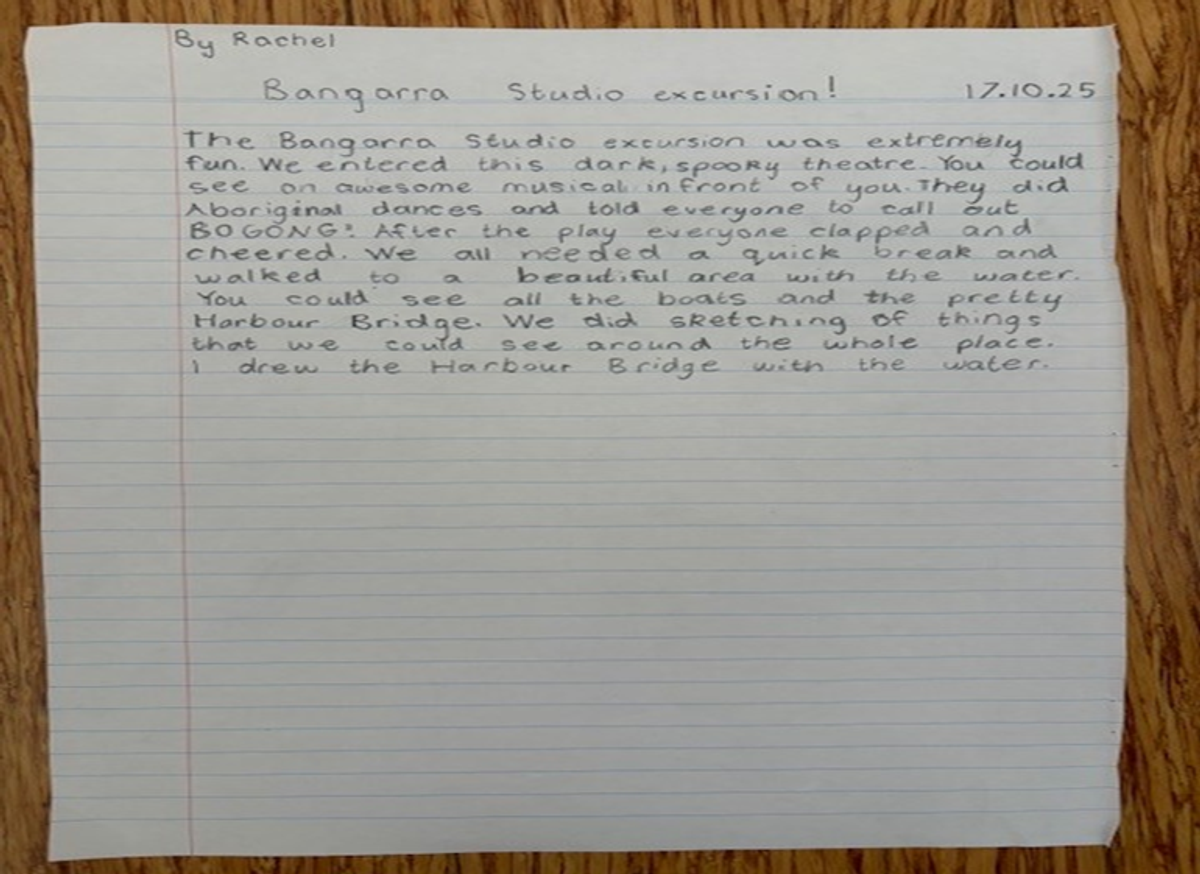 By Rachel
Bangarra Studio excursion! 17.10.25
The Bangarra Studio excursion was extremely
fun. We entered this dark, spooky theatre. You could
see an awesome musical infront of you. They did
Aboriginal dances and told everyone to call out
BOGONG! After the play everyone clapped and
cheered. We all needed a quick break and
walked to a beautiful area with the water.
You could see all the boats and the pretty
Harbour Bridge. We did sketching of things
that we could see around the whole place.
I drew the Harbour Bridge with the water.